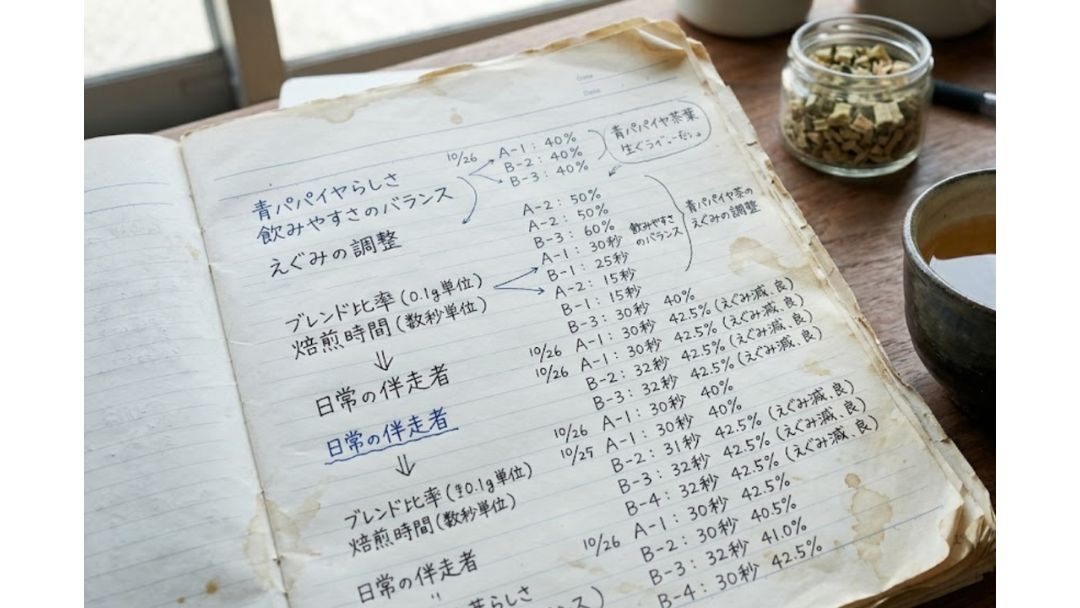 Date
Date
10/26
A-1：40%
B-2：40%
B-3：40%
青パパイヤ茶葉
青パパイヤらしさ
飲みやすさのバランス
えぐみの調整
A-2：50%
A-2：50%
B-3：60%
A-1：30秒
B-1：25秒
A-2：15秒
B-1：15秒
飲みやすさ
のバランス
青パパイヤ茶の
えぐみの調整
ブレンド比率(0.1g単位)
焙煎時間(数秒単位)
⇓
日常の伴走者
日常の伴走者
⇓
ブレンド比率(0.1g単位)
焙煎時間(数秒単位)
日常の伴走者
B-3：30秒 40%
10/26 A-1：30秒 42.5%(えぐみ減、良)
10/26 A-1：30秒 42.5%(えぐみ減、良)
B-2：32秒 42.5%(えぐみ減、良)
B-3：32秒 42.5%(えぐみ減、良)
A-1：30秒 40%
10/26 A-1：30秒 40%
10/25 B-2：31秒 42.5%(えぐみ減、良)
B-3：32秒 42.5%(えぐみ減、良)
B-4：32秒 42.5%(えぐみ減、良)
A-1：30秒 42.5%
10/26 B-2：30秒 40.5%
B-3：32秒 41.0%
B-4：30秒 42.5%